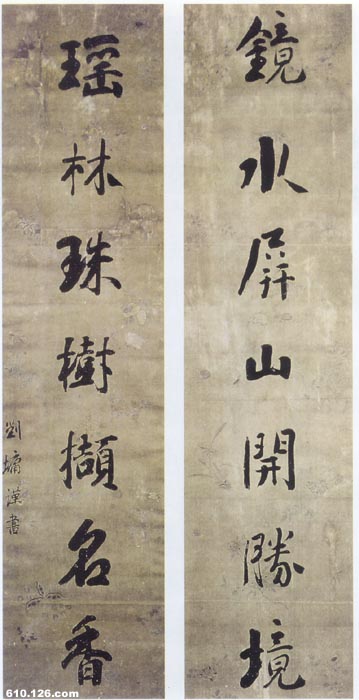 鏡水屏山開勝境
瑶林珠樹擷名香
劉墉漢書
610.126.com